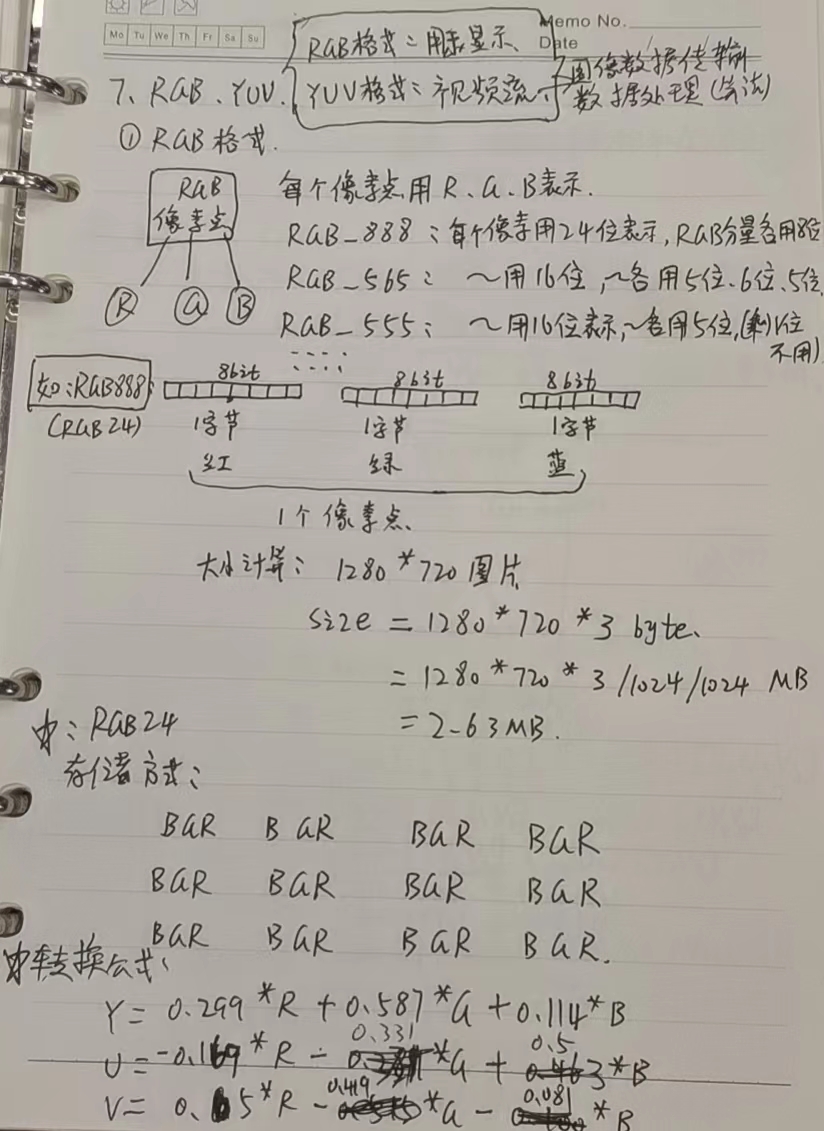 Mo Tu We Th Fr Sa Su
Memo No.
Date
RGB格式：用来显示、
YUV格式：视频流、
图像数据传输
数据处理(算法)
7、RGB、YUV.
① RGB格式.
RGB
像素点
R G B
每个像素点用R、G、B表示.
RGB_888：每个像素用24位表示,RGB分量各用8位
RGB_565：～用16位,～各用5位、6位、5位,
RGB_555：～用16位表示,～各用5位,(剩1位
不用)
如：RGB888：
(RGB24)
8bit 8bit 8bit
1字节 1字节 1字节
红 绿 蓝
1个像素点、
大小计算：1280*720图片
size = 1280*720*3 byte、
= 1280*720*3/1024/1024 MB
= 2.63MB.
☆：RGB24
存储方式：
BGR BGR BGR BGR
BGR BGR BGR BGR
BGR BGR BGR BGR.
☆转换公式：
Y= 0.299*R + 0.587*G + 0.114*B
U= -0.169*R - 0.331*G + 0.5*B
V= 0.5*R - 0.419*G - 0.081*B